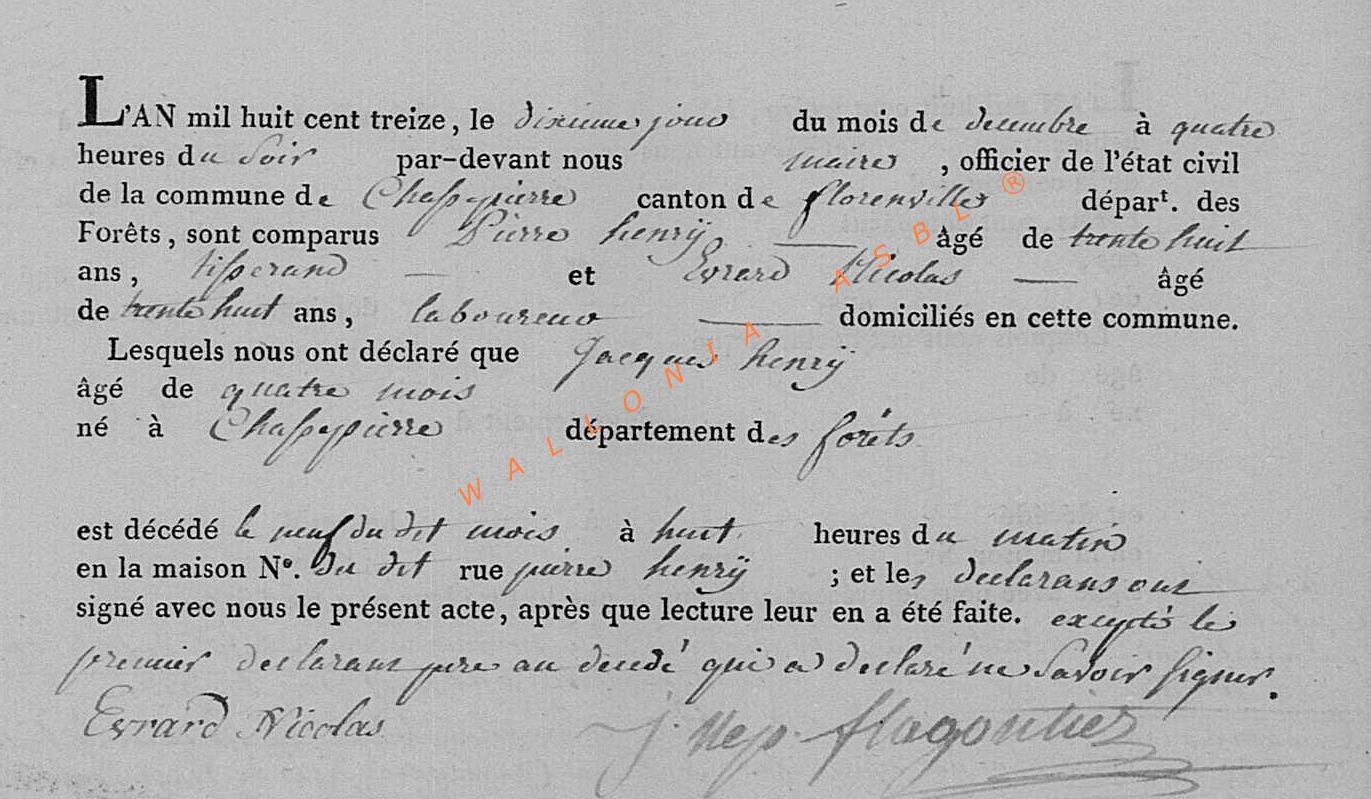 L'AN mil huit cent treize, le dixieme jour du mois de decembre à quatre
heures du Soir par-devant nous maire, officier de l'état civil
de la commune de Chassepierre canton de florenville départ. des
Forêts, sont comparus Pierre henrÿ âgé de trente huit
ans, tisserand et Evrard Nicolas âgé
de trente huit ans, laboureur domiciliés en cette commune.
Lesquels nous ont déclaré que Jacques henrÿ
âgé de quatre mois
né à Chassepierre département des forêts
est décédé le neuf du dit mois à huit heures du matin
en la maison No. du dit rue pierre henrÿ ; et les declarans ont
signé avec nous le présent acte, après que lecture leur en a été faite. excepté le
premier declarant pere au decedé qui a declaré ne Savoir signer.
Evrard Nicolas J. Nep. flagontier
WALLONIA ASBL ®